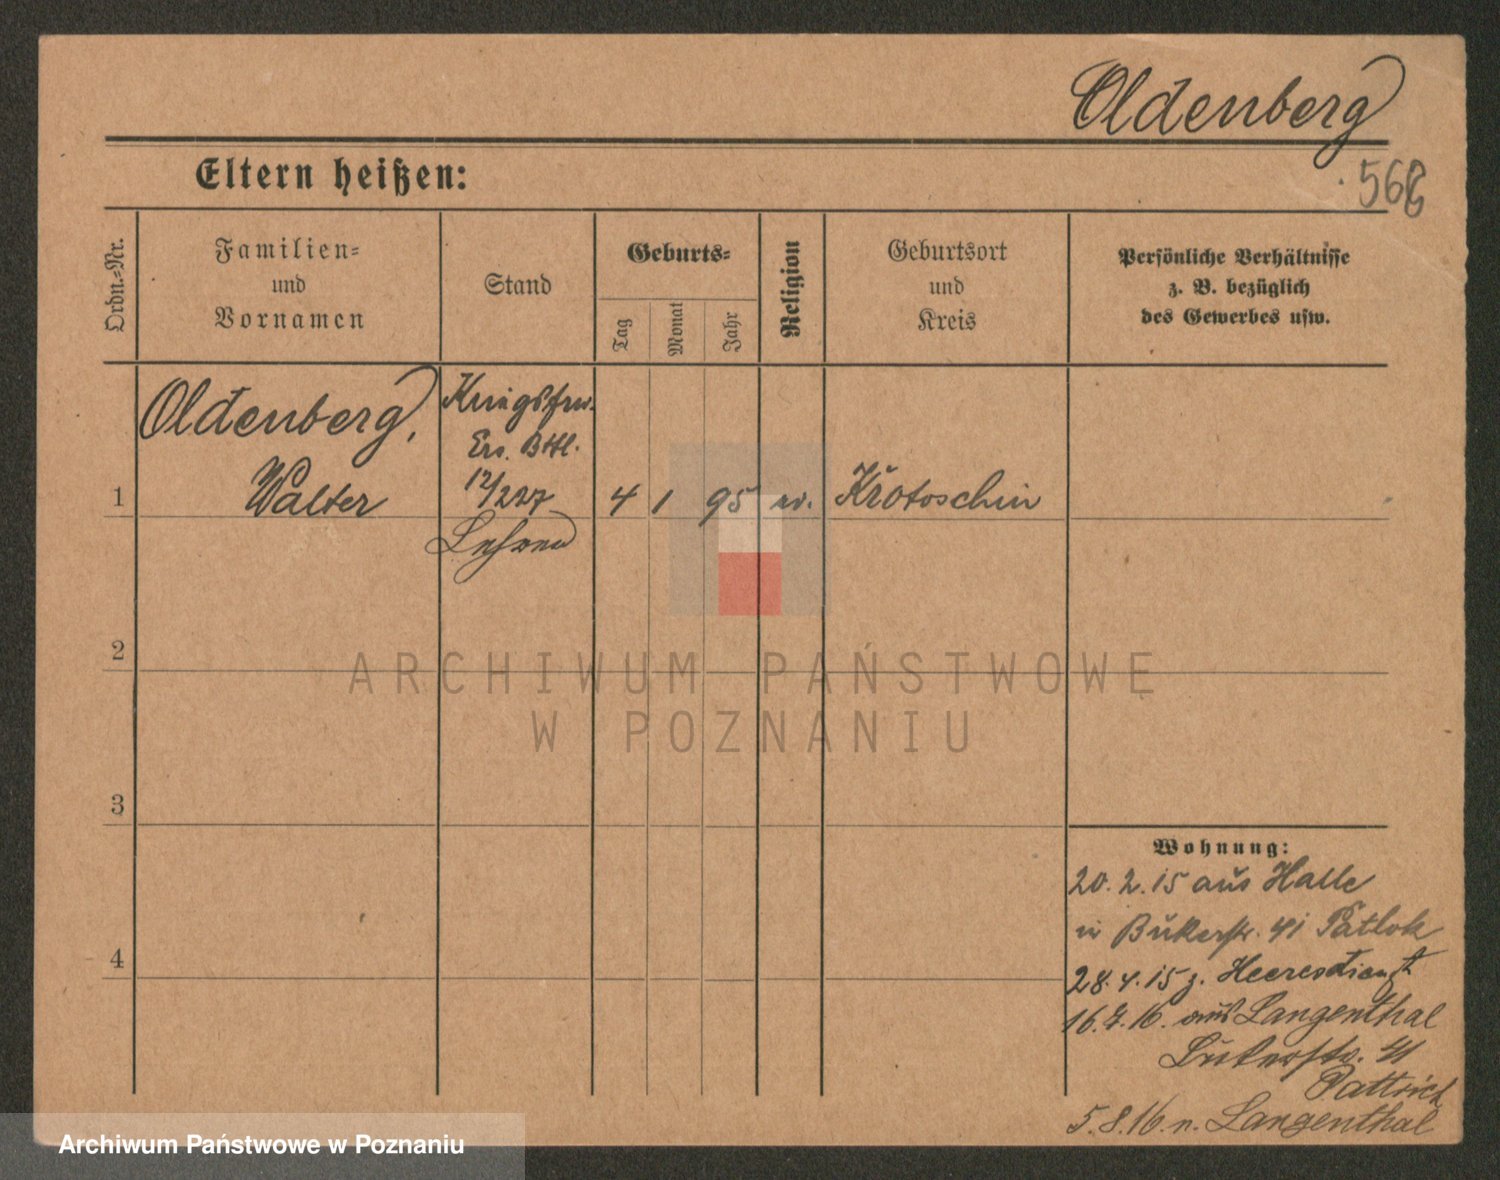 Oldenberg
566
Eltern heißen:
Ordn.-Nr.
Familien-
und
Vornamen
Stand
Geburts-
Tag
Monat
Jahr
Religion
Geburtsort
und
Kreis
Persönliche Verhältnisse
z. B. bezüglich
des Gewerbes usw.
1
Oldenberg,
Walter
Kriegsfrw.
Ers. Btl.
12/227
4
1
95
ev.
Krotoschin
2
3
4
ARCHIWUM PAŃSTWOWE
W POZNANIU
Wohnung:
20.2.15 aus Halle
in Bukerstr. 41
28.4.15 z. Heeresdienst
16.7.16. aus Langenthal
Bukerstr. 41
5.8.16. n. Langenthal
Archiwum Państwowe w Poznaniu